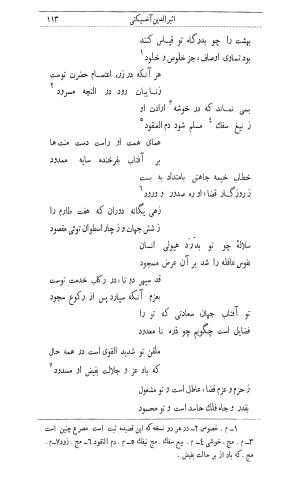 اثیرالدین آخسیکتی
۱۱۳
بهشت را چو بدرگاه تو قیاس کنند
بود تساوی اوصاف، جز خلوص و خلود۱
هر آنکه در زره اعتصام حضرت تست
زنابیان رود در النجه مسرود۲
بسی نماند که در خوشه۳ ارادن او
ز تیغ سفك۴ مسلم شود دم العنقود۵
همای همت او راست دست منتها
بر آفتاب بفرخنده سایه ممدود
خطاب خیمه جاهش بامتداد به بست
ز روزگار قضا، اوره صدور و ورود۶
زهی یگانه دوران که هفت طارم را
ز شش جهات و ز چار اسطوان توئی مقصود
سلاله چو تو بدزد هیولی انسان
نفوس عاقله را شد بر آن عرض مسجود
قد سپهر دوتا، در رکاب خدمت تست
بعزم آنکه سپارد پس از رکوع سجود
تو آفتاب جهان سعادتی که تو را
فضایل است چگویم چو ذره نا معدود
ملقن تو شدید القوی است در همه حال
که باد عز و جلالت بفیض او مسدود۷
ز حزم و عزم قضاء عاطل است و تو مشغول
بقدر و جاه فلك حاسد است و تو محسود
۱ـ م . خصوص ۲ـ در هر دو نسخه که این قصیده ثبت است مصرع چنین است
۳ـ م . مج. خوشی ۴ـ م . بیع سفك. مج تیفك ۵ـ م . دم التقود ۶ـ مج . زود ۷ـ م .
مج . که باد از بر حالت بفیض .